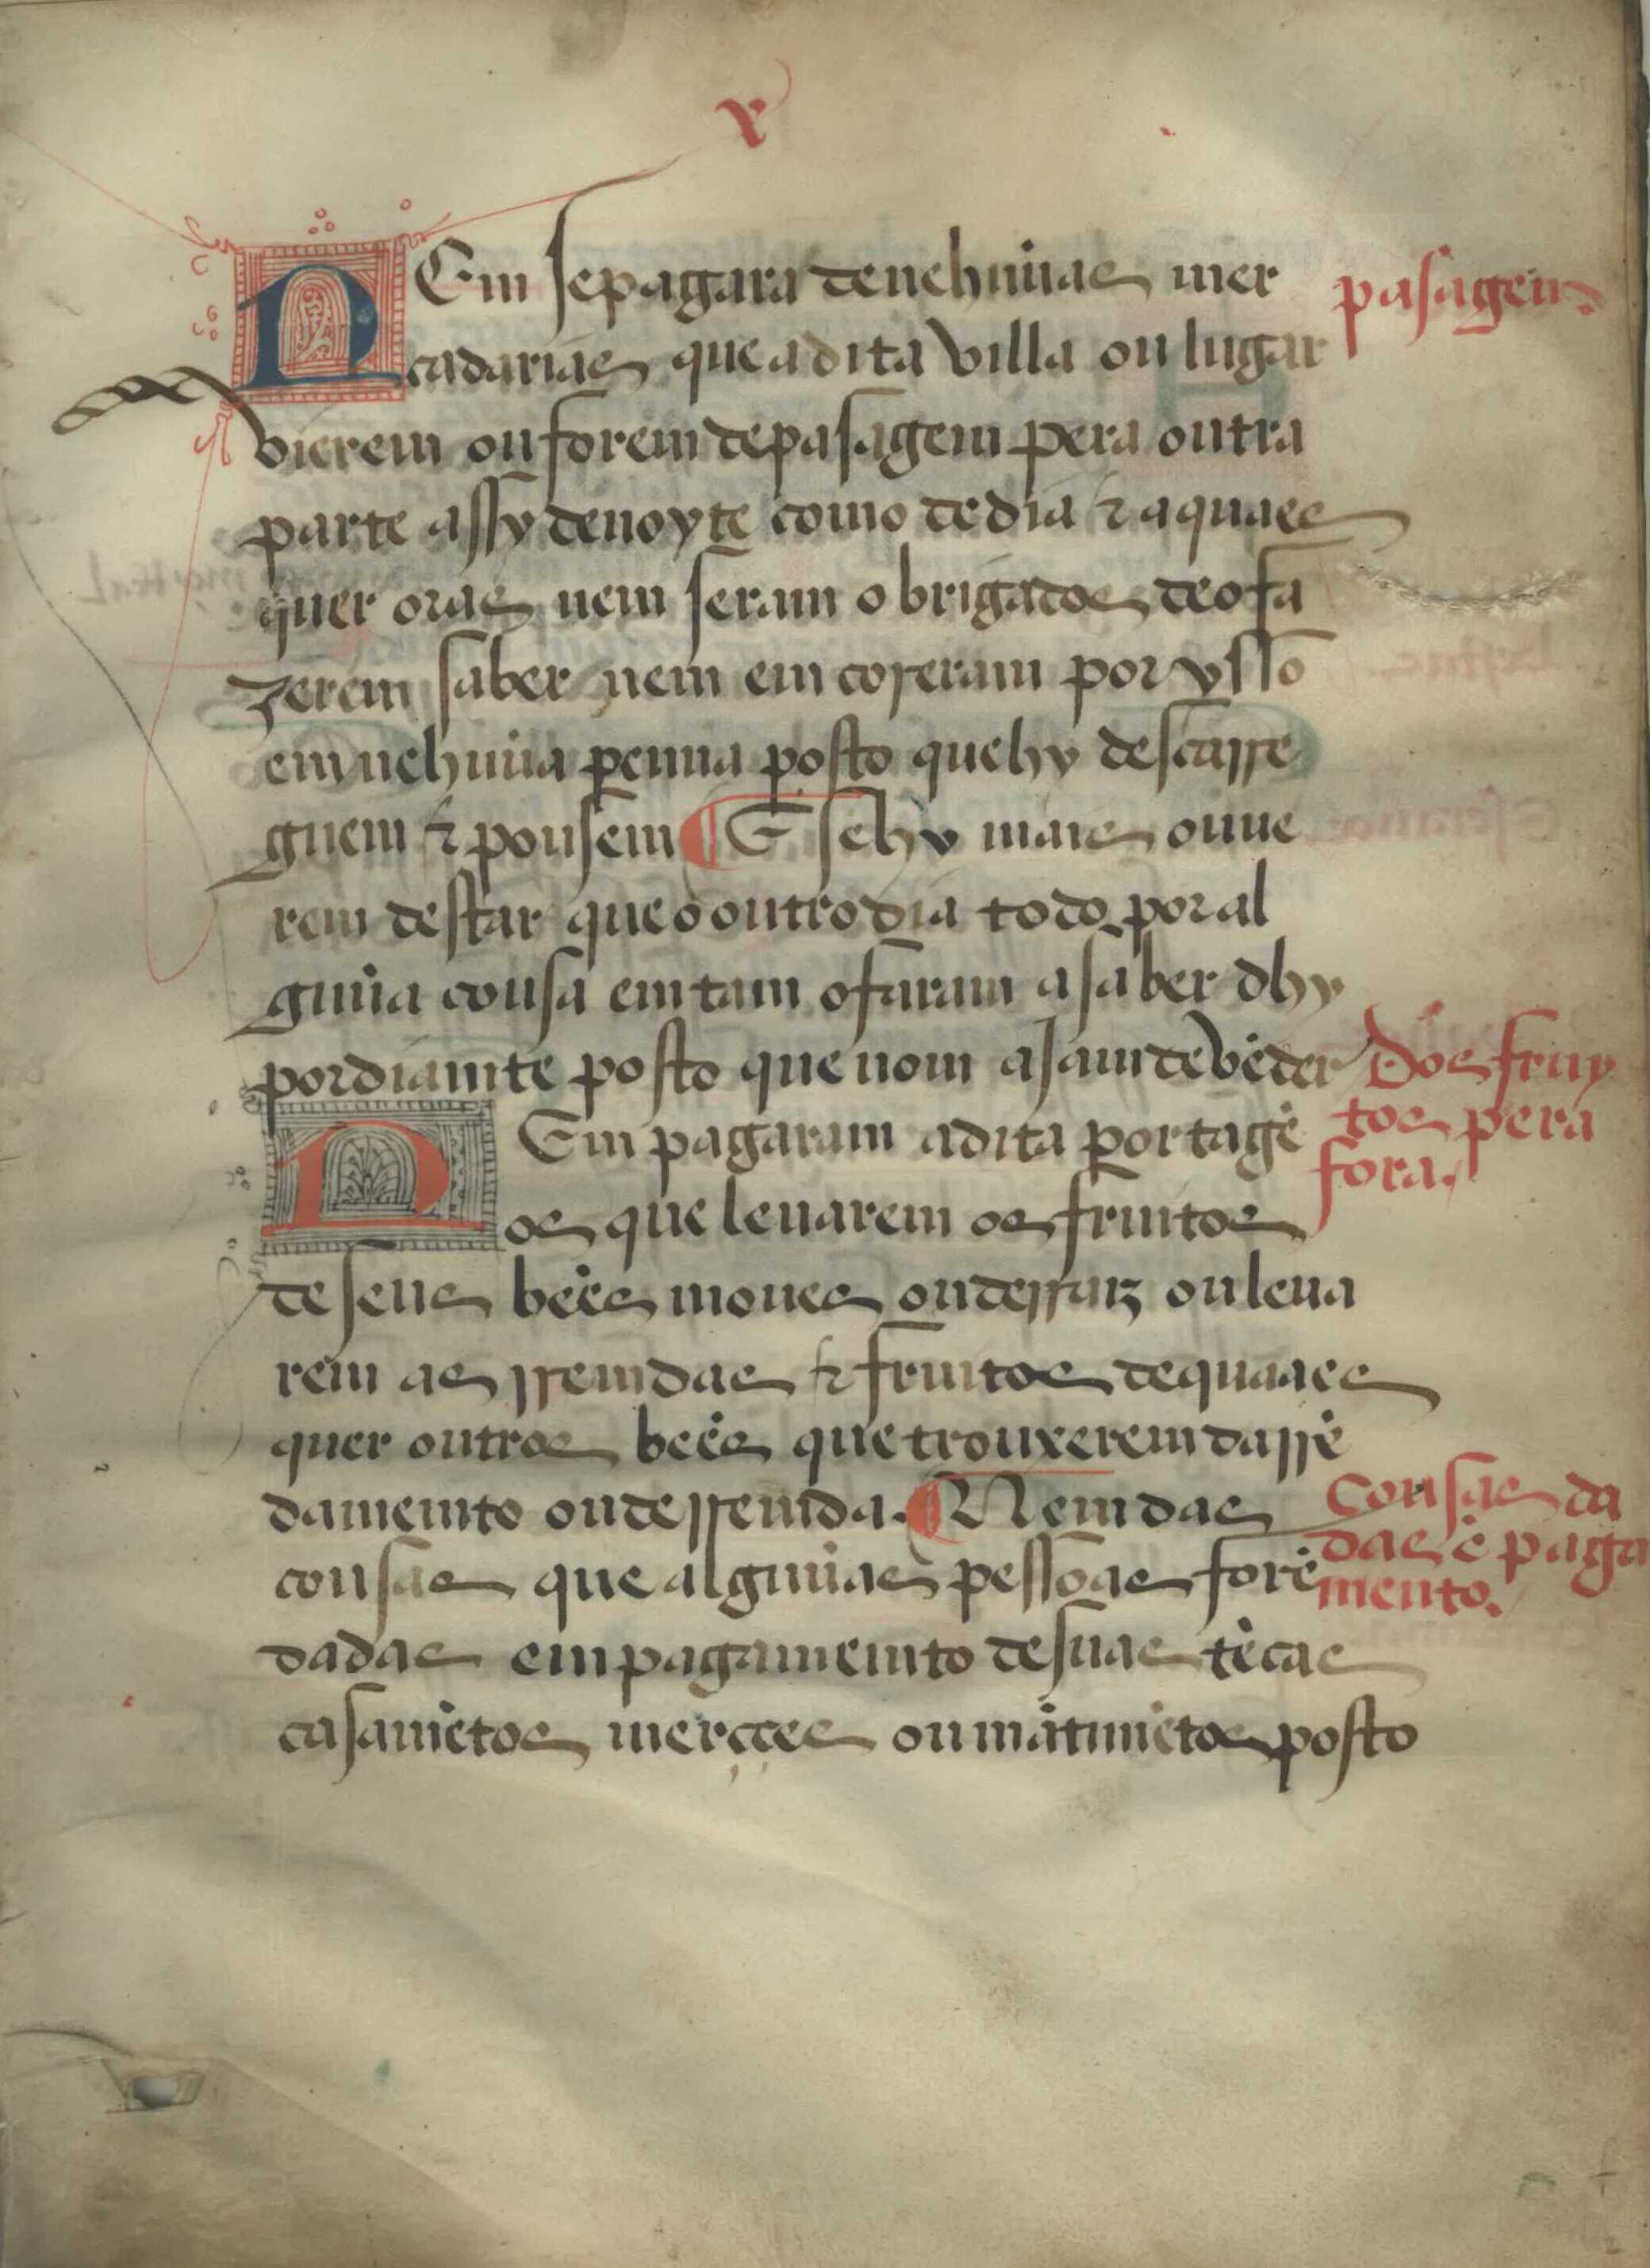 x
NEm se pagara de nehũuas mer
pasagem.
cadarias que a dita villa ou lugar
vierem ou forem de pasagem pera outra
parte assy de noyte como de dia ⁊ a quaes
quer oras nem seram obrigados de o fa
zerem saber nem emcorreram por ysso
em nehuũa penna posto que hy descarre
guem ⁊ pousem ¶ E se hy mais ouue
rem destar que o outro dia todo por al
guũa cousa emtam o faram a saber dhy
por diamte posto que nom ajam de vẽder
Dos fruy
tos pera
fora.
NEm pagaram a dita portagẽ
os que leuarem os fruitos
de seus bẽes moues ou de rraiz ou leua
rem as rremdas ⁊ fruitos de quaaes
quer outros bẽes que trouxerem darrẽ
damemto ou de rremda. ¶ Nem das
Cousas da
das ẽ paga
mento.
cousas que alguũas pessoas forẽ
dadas em pagamemto de suas tẽcas
casamẽtos merçces ou mãtimẽtos posto